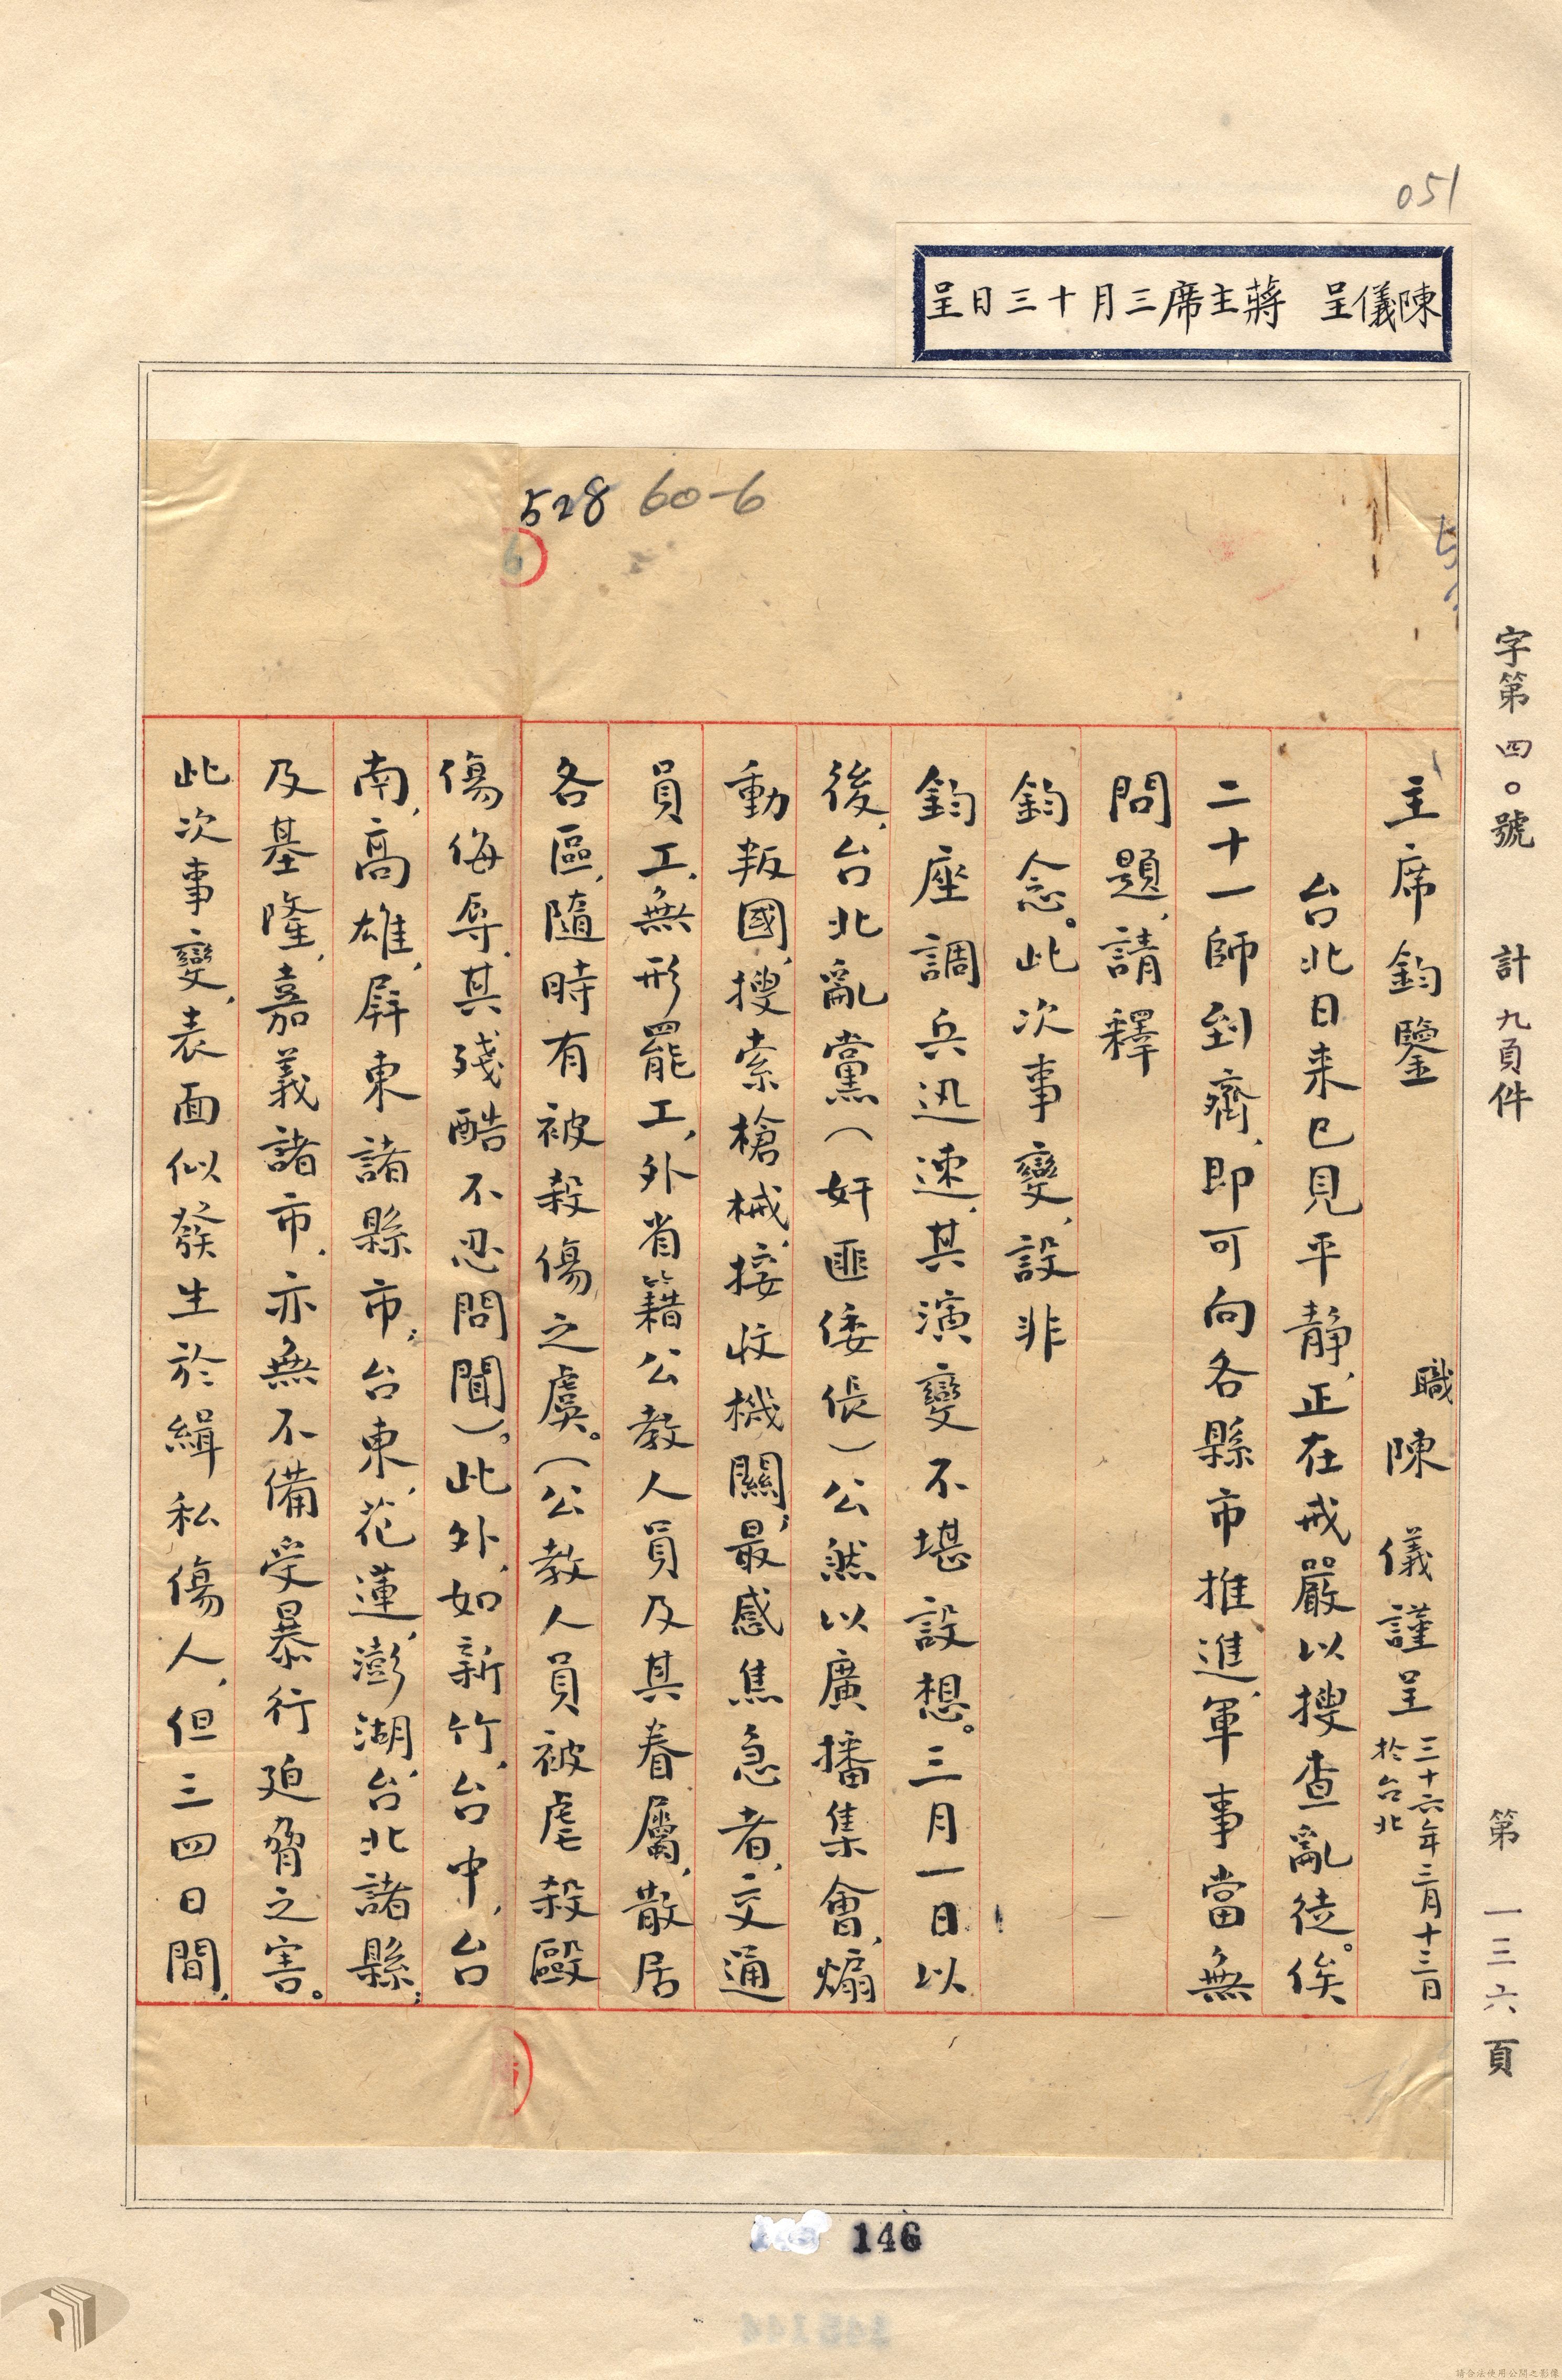 051
陳儀呈 蔣主席三月十三日呈
字第四〇號 計九頁件 第一三六頁
528 60-6
6
主席鈞鑒 職陳 儀謹呈 三十六年三月十三日
於台北
台北日来已見平静,正在戒嚴以搜查亂徒。俟
二十一師到齊,即可向各縣市推進,軍事當無
問題,請釋
鈞念。此次事變,設非
鈞座調兵迅速,其演變不堪設想。三月一日以
後,台北亂黨(奸匪倭倀)公然以廣播集會,煽
動叛國,搜索槍械,接收機關,最感焦急者,交通
員工,無形罷工,外省籍公教人員及其眷屬,散居
各區,隨時有被殺傷之虞。(公教人員被虐殺毆
傷侮辱,其殘酷不忍問聞)。此外,如新竹,台中,台
南,高雄,屏東諸縣市,台東,花蓮,澎湖,台北諸縣,
及基隆,嘉義諸市,亦無不備受暴行迫脅之害。
此次事變,表面似發生於緝私傷人,但三四日間,
146
請合法使用公開之影像